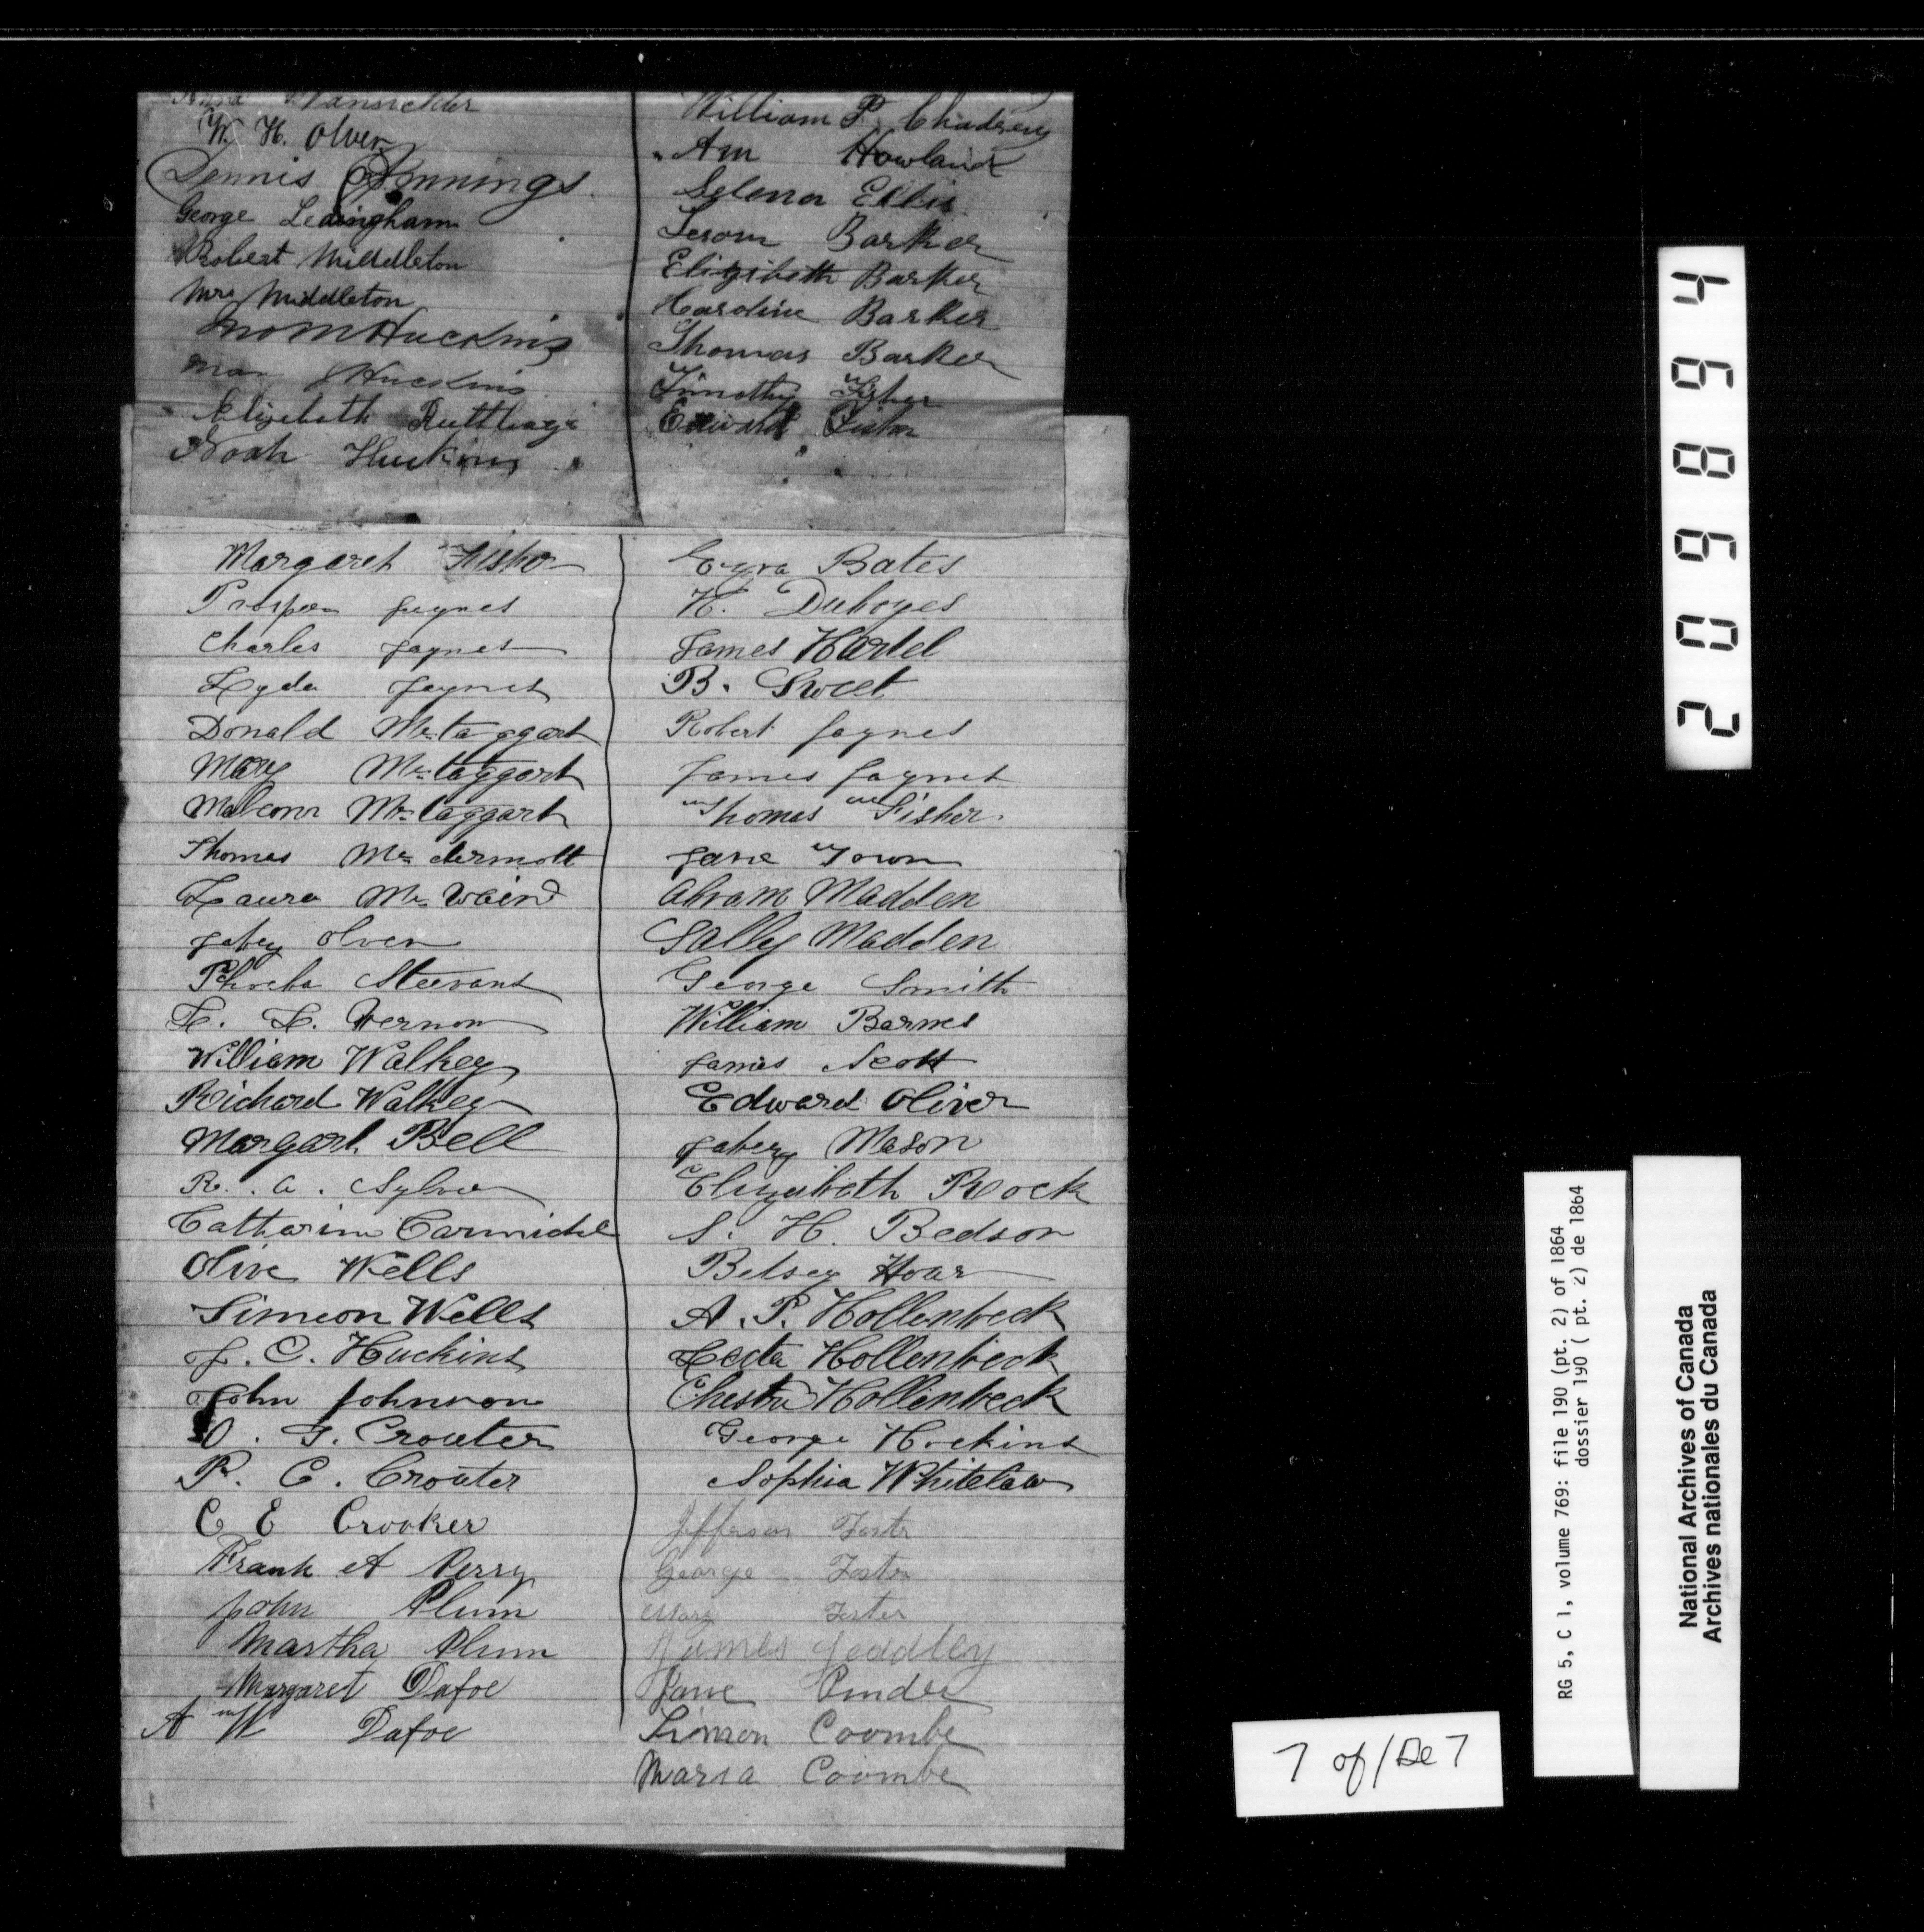 W. H. Olver
Dennis Jennings
George Ledingham
Robert Middleton
Mrs Middleton
Huckins
Huckins
Elizebeth Ruttleage
Noah Huckins
William P. Chadsey
Ann Howland
Selena Ellis
Jerom Barker
Elizibeth Barker
Caroline Barker
Thomas Barker
Timothy Fisher
Edward Fisher
Margaret Fisher
Prosper Jaynes
Charles Jaynes
Lyda Jaynes
Donald Mctaggart
Mary Mctaggart
Malcom Mctaggart
Thomas Mcdermott
Laura Mc
Jabez Olver
Phoeba Steevans
L. L. Vernon
William Walkey
Richard Walkey
Margart Bell
R. A. Sylver
Catharine Carmichel
Olive Wells
Simeon Wells
J. C. Huckins
John Johnson
O. G. Crouter
P. C. Crouter
C E Crooker
Frank A Perry
John Plum
Martha Plum
Margaret Dafoe
A W Dafoe
Ezra Bates
H. Duboyes
James Hartel
B. Sweet
Robert Jaynes
James Jaynes
Thomas Fisher.
Jane Town
Abram Madden
Sally Madden
George Smith
William Barnes
James Scott
Edward Oliver
Jabez Mason
Elizabeth Rock
S. H. Bedson
Betsey Hoar
A. P. Hollenbeck
Hollenbeck
Chester Hollenbeck
George Hockins
Sophia Whitelaw
Jefferson Foster
George Foster
Mary Foster
James Jeadley
Jane Pinder
Simon Coombe
Maria Coombe
209894
RG 5, C 1, volume 769: file 190 (pt. 2) of 1864
dossier 190 ( pt. 2) de 1864
National Archives of Canada
Archives nationales du Canada
7 of/De 7